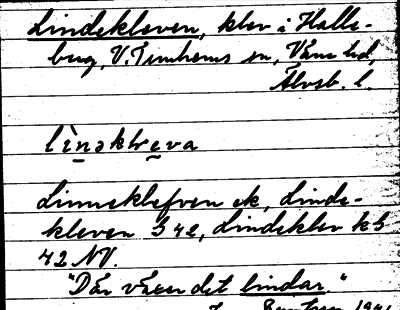 Lindekleven, klev i Halle-
berg, V. Tunhems sn, Väne hd,
Älvsb. l.
lìnəkleva
Linneklefven ek, Linde-
kleven G 42, Lindeklev kS
42 NV.
"Där växer det lindar."